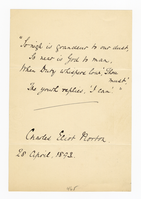 "So nigh is grandeur to our dust,
So near is God to man,
When Duty whispers low, Thou
must,'
The youth replies, 'I can.'"
Charles Eliot Norton
28 April. 1893.